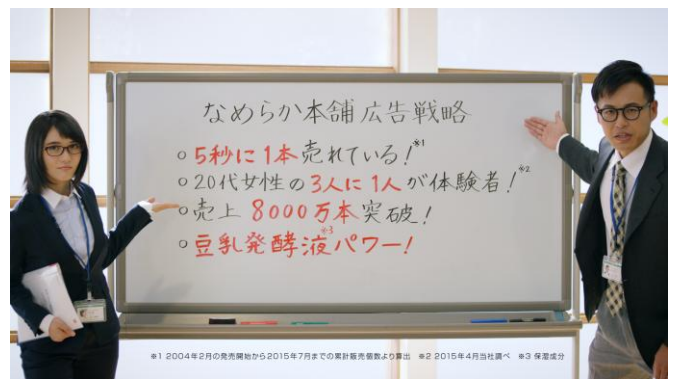 なめらか本舗 広告戦略
○5秒に1本売れている!※1
○20代女性の3人に1人が体験者!※2
○売上8000万本突破!
○豆乳発酵液※3パワー!
※1 2004年2月の発売開始から2015年7月までの累計販売個数より算出 ※2 2015年4月当社調べ ※3 保湿成分